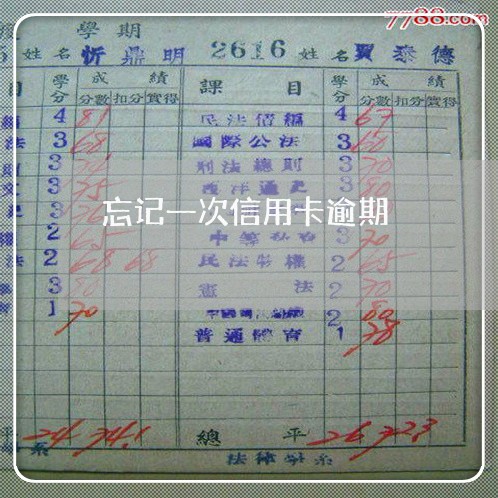 7788.com
學期
姓名 忻鼎明 2616 姓名 賈泰德
目 學分 成績 課目 學分 成績
分數 扣分 實得 分數 扣分 實得
4 81 民法債編 4 67
法 3 68 國際公法 3 60
3 刑法總則 3 70
3 75 西洋通史 3 80
忘记一次信用卡逾期
2 65 3 70
法 2 68 68 民法物權 2 65
3 80 憲法 2 70
1 70 2 80
普通體育 1 78
平 24 74.1 總平 26 72.3
系 法律學系